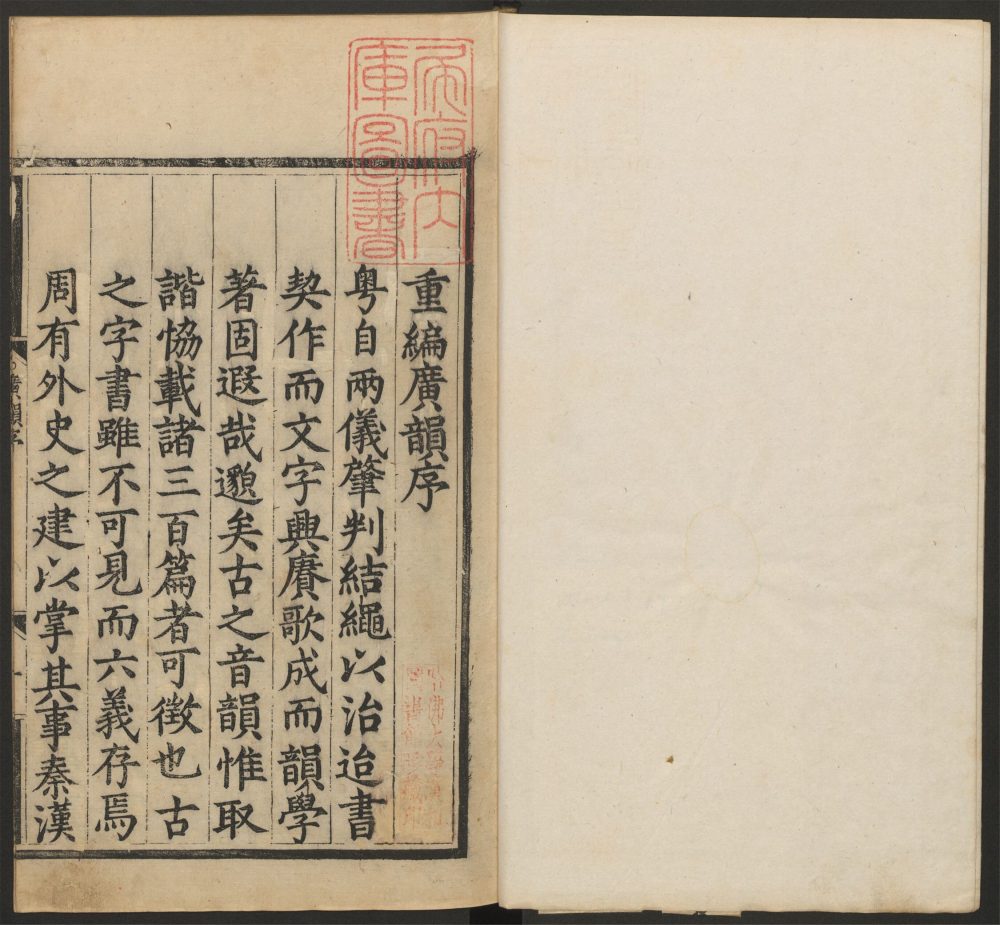 重編廣韻序
粵自兩儀肇判結繩以治迨書
契作而文字興賡歌成而韻學
著固遐哉邈矣古之音韻惟取
諧恊載諸三百篇者可徵也古
之字書雖不可見而六義存焉
周有外史之建以掌其事秦漢
廣韻序
一
府內
庫圖書